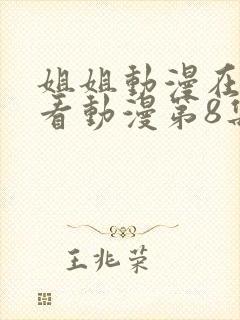 姐姐動漫在
看動漫第8集
王兆荣